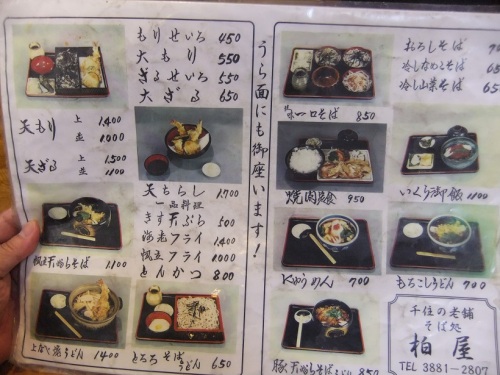 もりせいろ 450
大もり 550
ざるせいろ 550
大ざる 650
天もり 上 1,400
並 1000
天ざる 上 1,500
並 1100
天もらし 1,700
一品料理
きす天ぷら 500
海老フライ 1400
帆立フライ 1100
とんかつ 800
帆立天ぷらそば 1100
上なべ焼うどん 1400
とろろ そば うどん 650
うら面にも御座います!
おろしそば
冷しなめこそば 65
冷し山菜そば 65
一口そば 850
焼肉定食 950
いくら御飯 1100
にゅうめん 700
もろこしうどん 700
豚天ぷらそばうどん 850
千住の老舗
そば処
柏屋
TEL 3881-2807